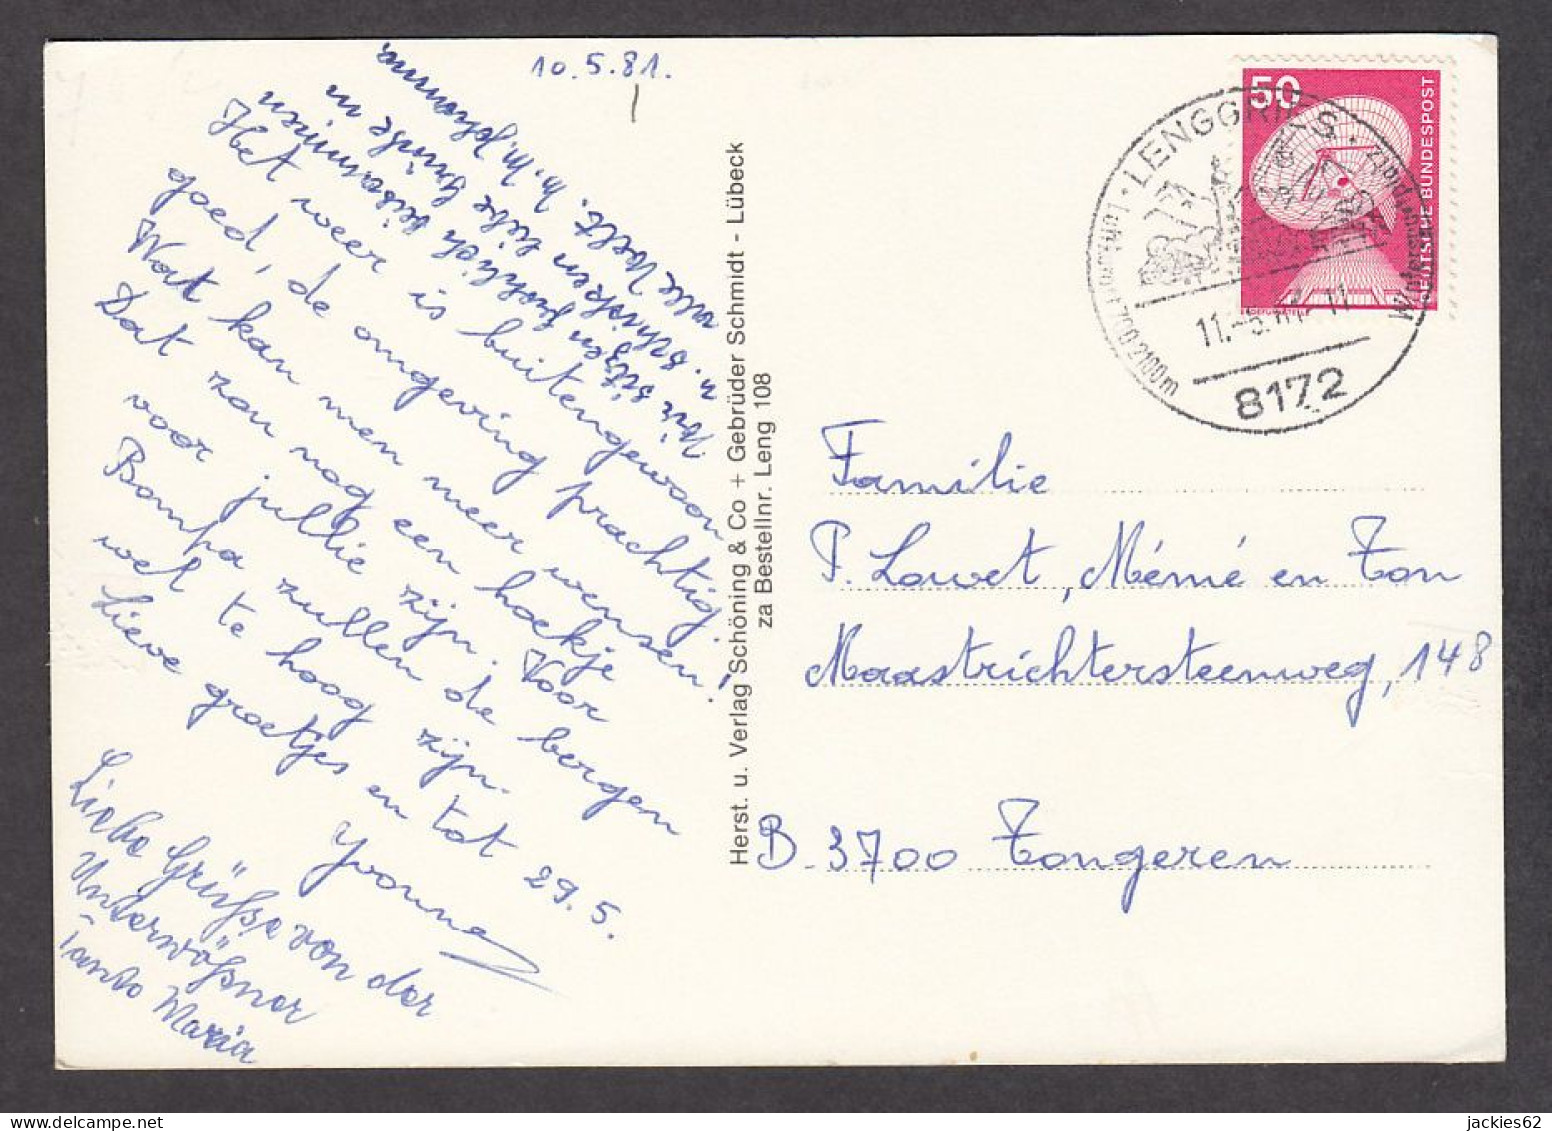 10.5.81.
Het weer is buitengewoon
goed, de omgeving prachtig
Wat kan men meer wensen!
Dat zou nog een hoekje
voor jullie zijn. Voor
Bompa zullen de bergen
wel te hoog zijn.
Lieve groetjes en tot 29.5.
Yvonne
Liebe Grüsse von der
Unterwößner
Tante Maria
Wir sitzen fröhlich beisammen
u. schicken liebe Grüße in
alle Welt.
Herst. u. Verlag Schöning & Co + Gebrüder Schmidt - Lübeck
za Bestellnr. Leng 108
50
DEUTSCHE BUNDESPOST
LENGGRIES
700-2100m
8172
Familie
P. Lowet, Mémé en Ton
Maastrichtersteenweg, 148
B-3700 Tongeren
jackies62